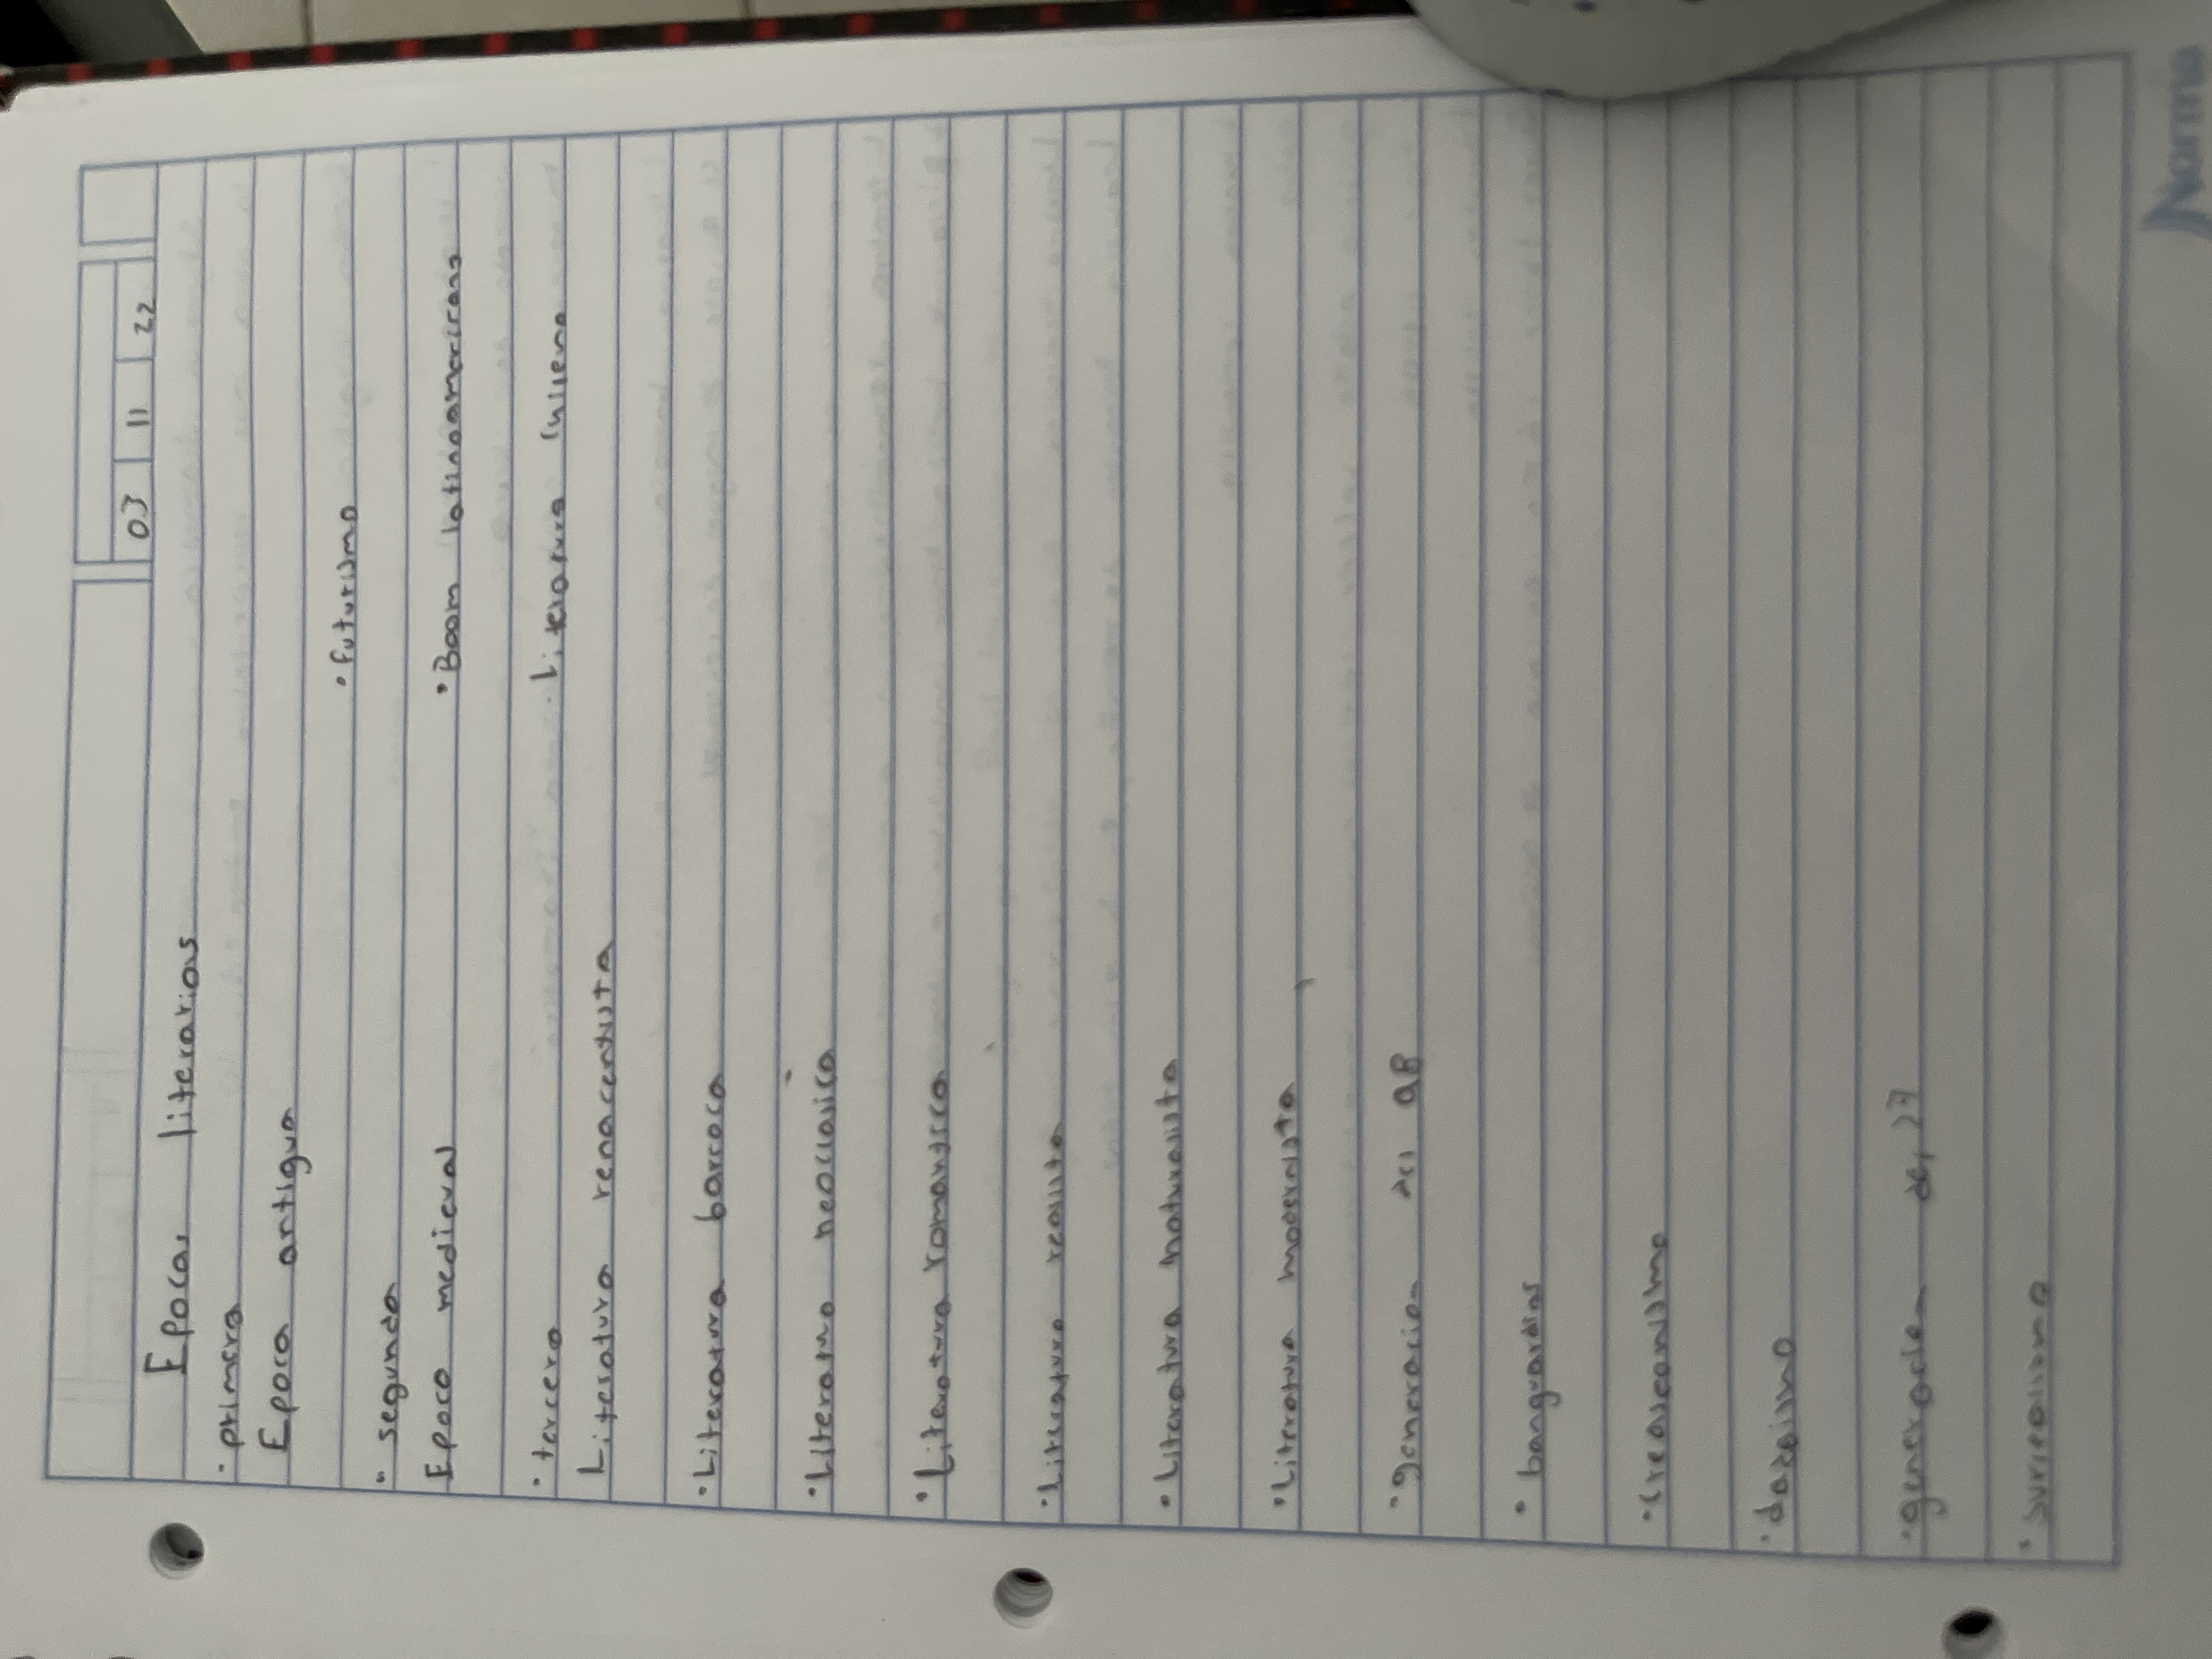 03 11 22
Epocas literarias
· primera
Epoca antigua
· segunda
Epoca medieval
· tercera
Literatura renacentista
· Literatura barroca
· Literatura neoclasica
· Literatura romantica
· Literatura realista
· Literatura naturalista
· Literatura modernista
· generacion del 98
· banguardias
· dadaismo
· generacion del 27
· surrealismo
· futurismo
· Boom latinoamericano
· Literatura
Norma